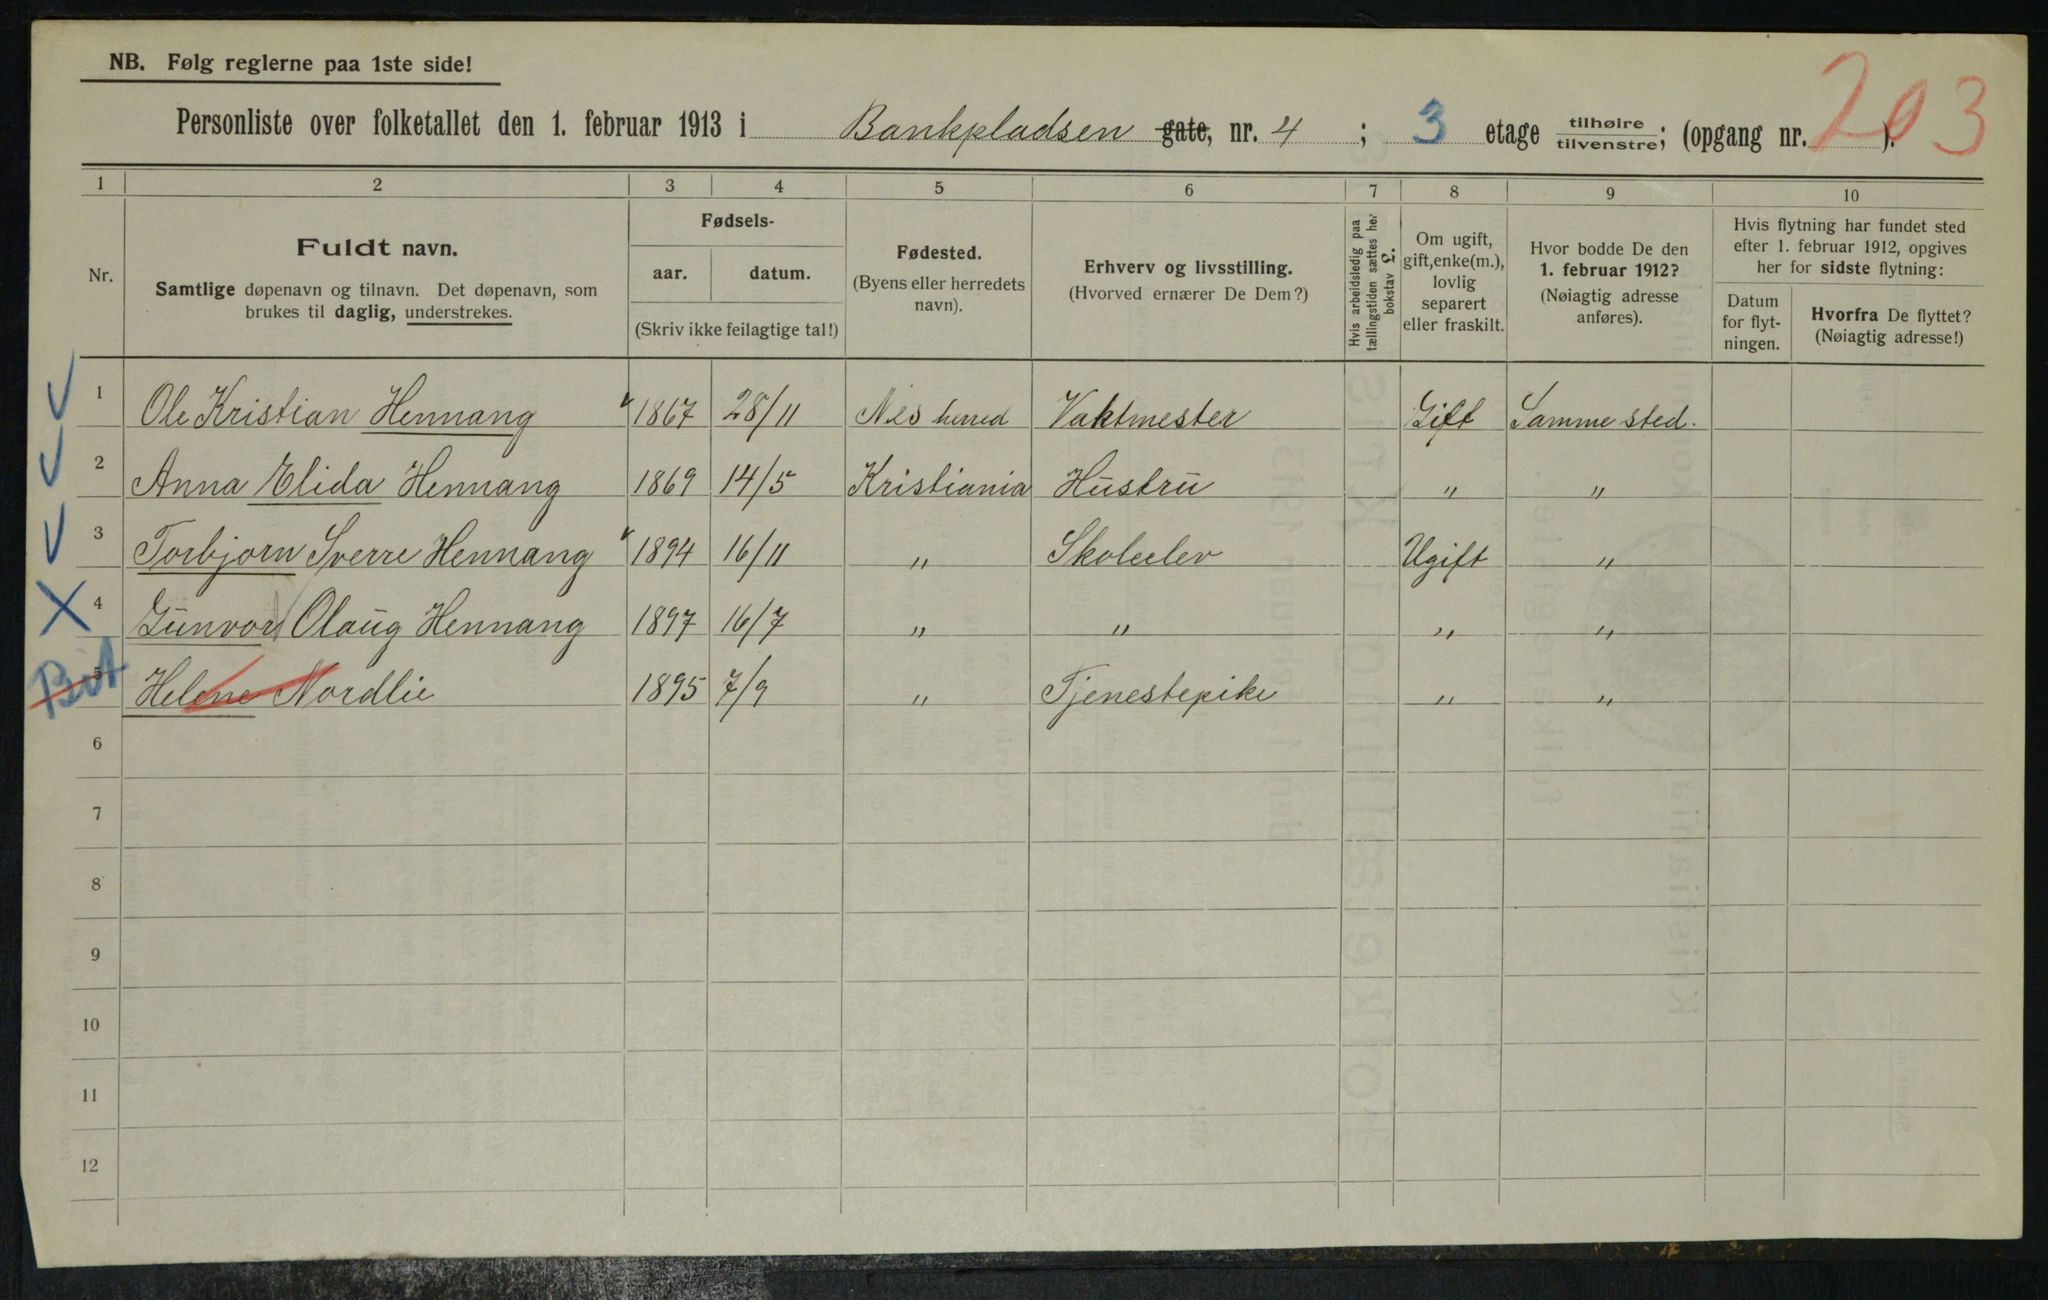 NB. Følg reglerne paa 1ste side!
203
Personliste over folketallet den 1. februar 1913 i Bankpladsen gate, nr. 4 ; 3 etage tilhøire tilvenstre; (opgang nr. ).
1 2 3 4 5 6 7 8 9 10
Nr.
Fuldt navn.
Samtlige døpenavn og tilnavn. Det døpenavn, som
brukes til daglig, understrekes.
Fødsels-
aar. datum.
(Skriv ikke feilagtige tal!)
Fødested.
(Byens eller herredets
navn).
Erhverv og livsstilling.
(Hvorved ernærer De Dem?)
Hvis arbeidsledig paa
tællingstiden sættes her
bokstav L.
Om ugift,
gift, enke(m.),
lovlig
separert
eller fraskilt.
Hvor bodde De den
1. februar 1912?
(Nøiagtig adresse
anføres).
Hvis flytning har fundet sted
efter 1. februar 1912, opgives
her for sidste flytning:
Datum
for flyt-
ningen.
Hvorfra De flyttet?
(Nøiagtig adresse!)
1 Ole Kristian Hennang 1867 28/11 Nes herred Vaktmester Gift Samme sted.
2 Anna Elida Hennang 1869 14/5 Kristiania Hustru " "
3 Torbjørn Sverre Hennang 1894 16/11 " Skoleelev Ugift "
X 4 Gunvor Olaug Hennang 1897 16/7 " " " "
5 Helene Nordlie 1895 7/9 " Tjenestepike " "
6
7
8
9
10
11
12